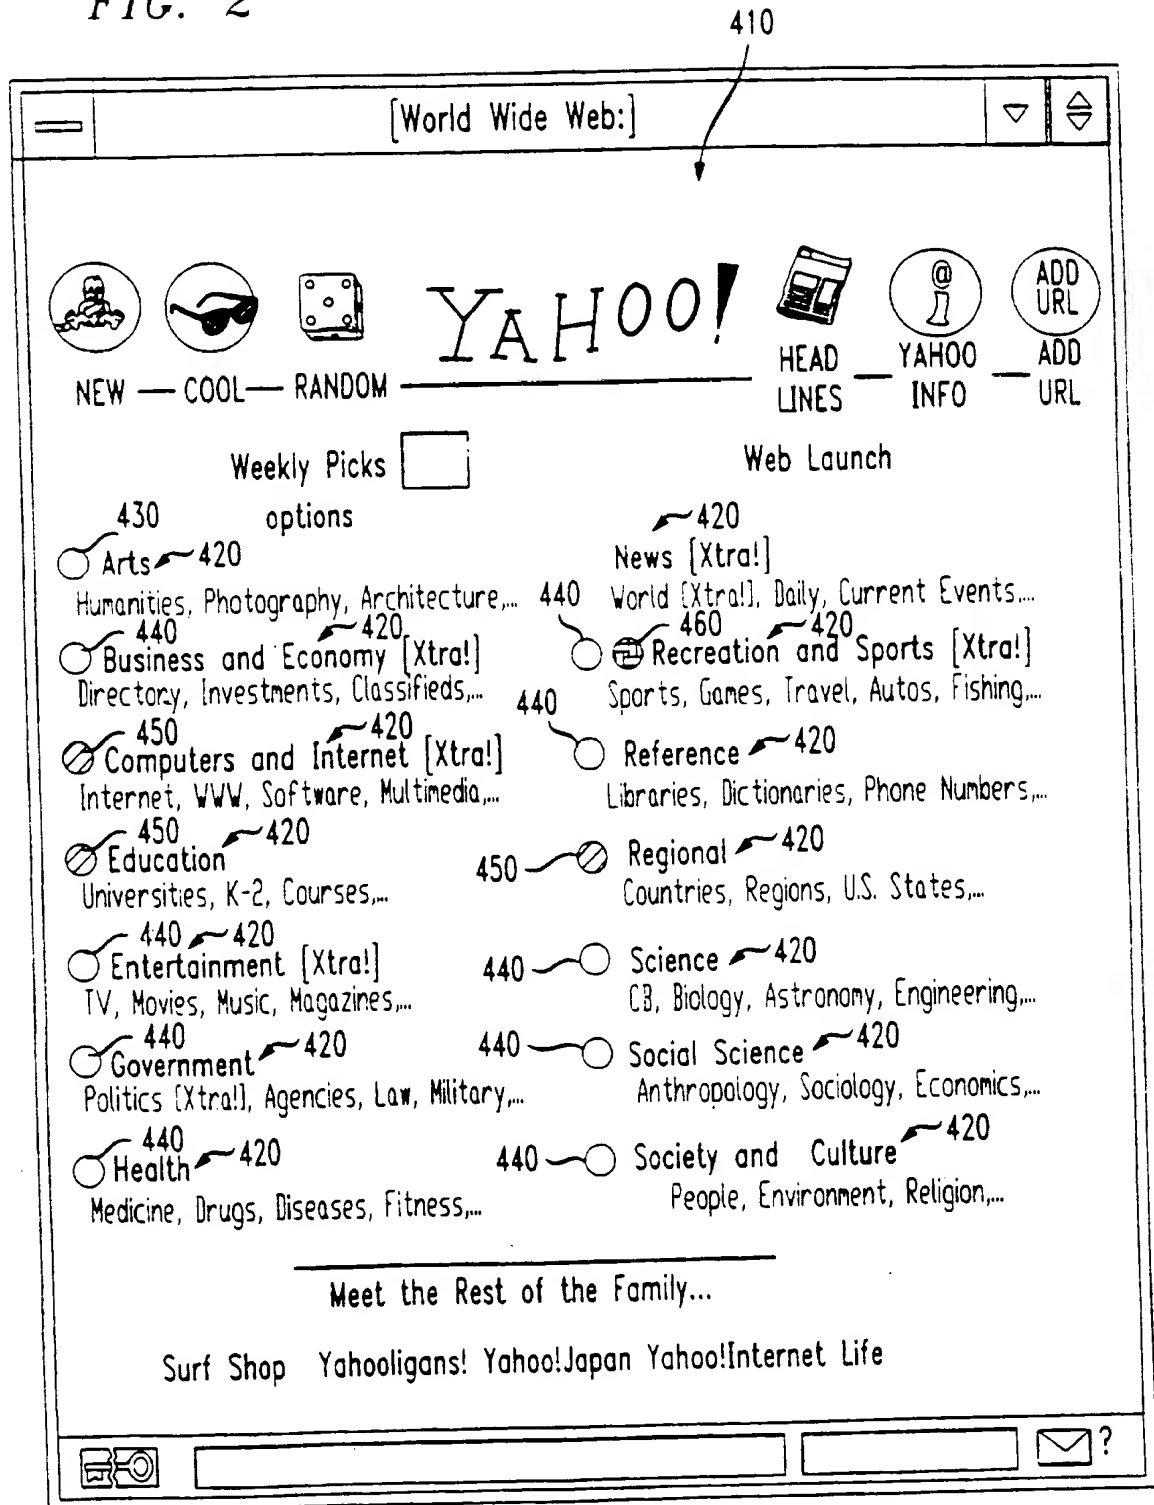 FIG. 2
410
[World Wide Web:]
YAHOO!
ADD
URL
NEW — COOL — RANDOM
HEAD
LINES — YAHOO
INFO — ADD
URL
Weekly Picks
options
Web Launch
430
Arts 420
Humanities, Photography, Architecture,...
440 420
Business and Economy [Xtra!]
Directory, Investments, Classifieds,...
450 420
Computers and Internet [Xtra!]
Internet, WWW, Software, Multimedia,...
450 420
Education
Universities, K-2, Courses,...
440 420
Entertainment [Xtra!]
TV, Movies, Music, Magazines,...
440
Government 420
Politics [Xtra!], Agencies, Law, Military,...
440
Health 420
Medicine, Drugs, Diseases, Fitness,...
420
News [Xtra!]
World [Xtra!], Daily, Current Events,...
440 460 420
Recreation and Sports [Xtra!]
Sports, Games, Travel, Autos, Fishing,...
440
Reference 420
Libraries, Dictionaries, Phone Numbers,...
450 Regional 420
Countries, Regions, U.S. States,...
440 Science 420
CB, Biology, Astronomy, Engineering,...
440 Social Science 420
Anthropology, Sociology, Economics,...
440 Society and Culture 420
People, Environment, Religion,...
Meet the Rest of the Family...
Surf Shop Yahooligans! Yahoo!Japan Yahoo!Internet Life
?